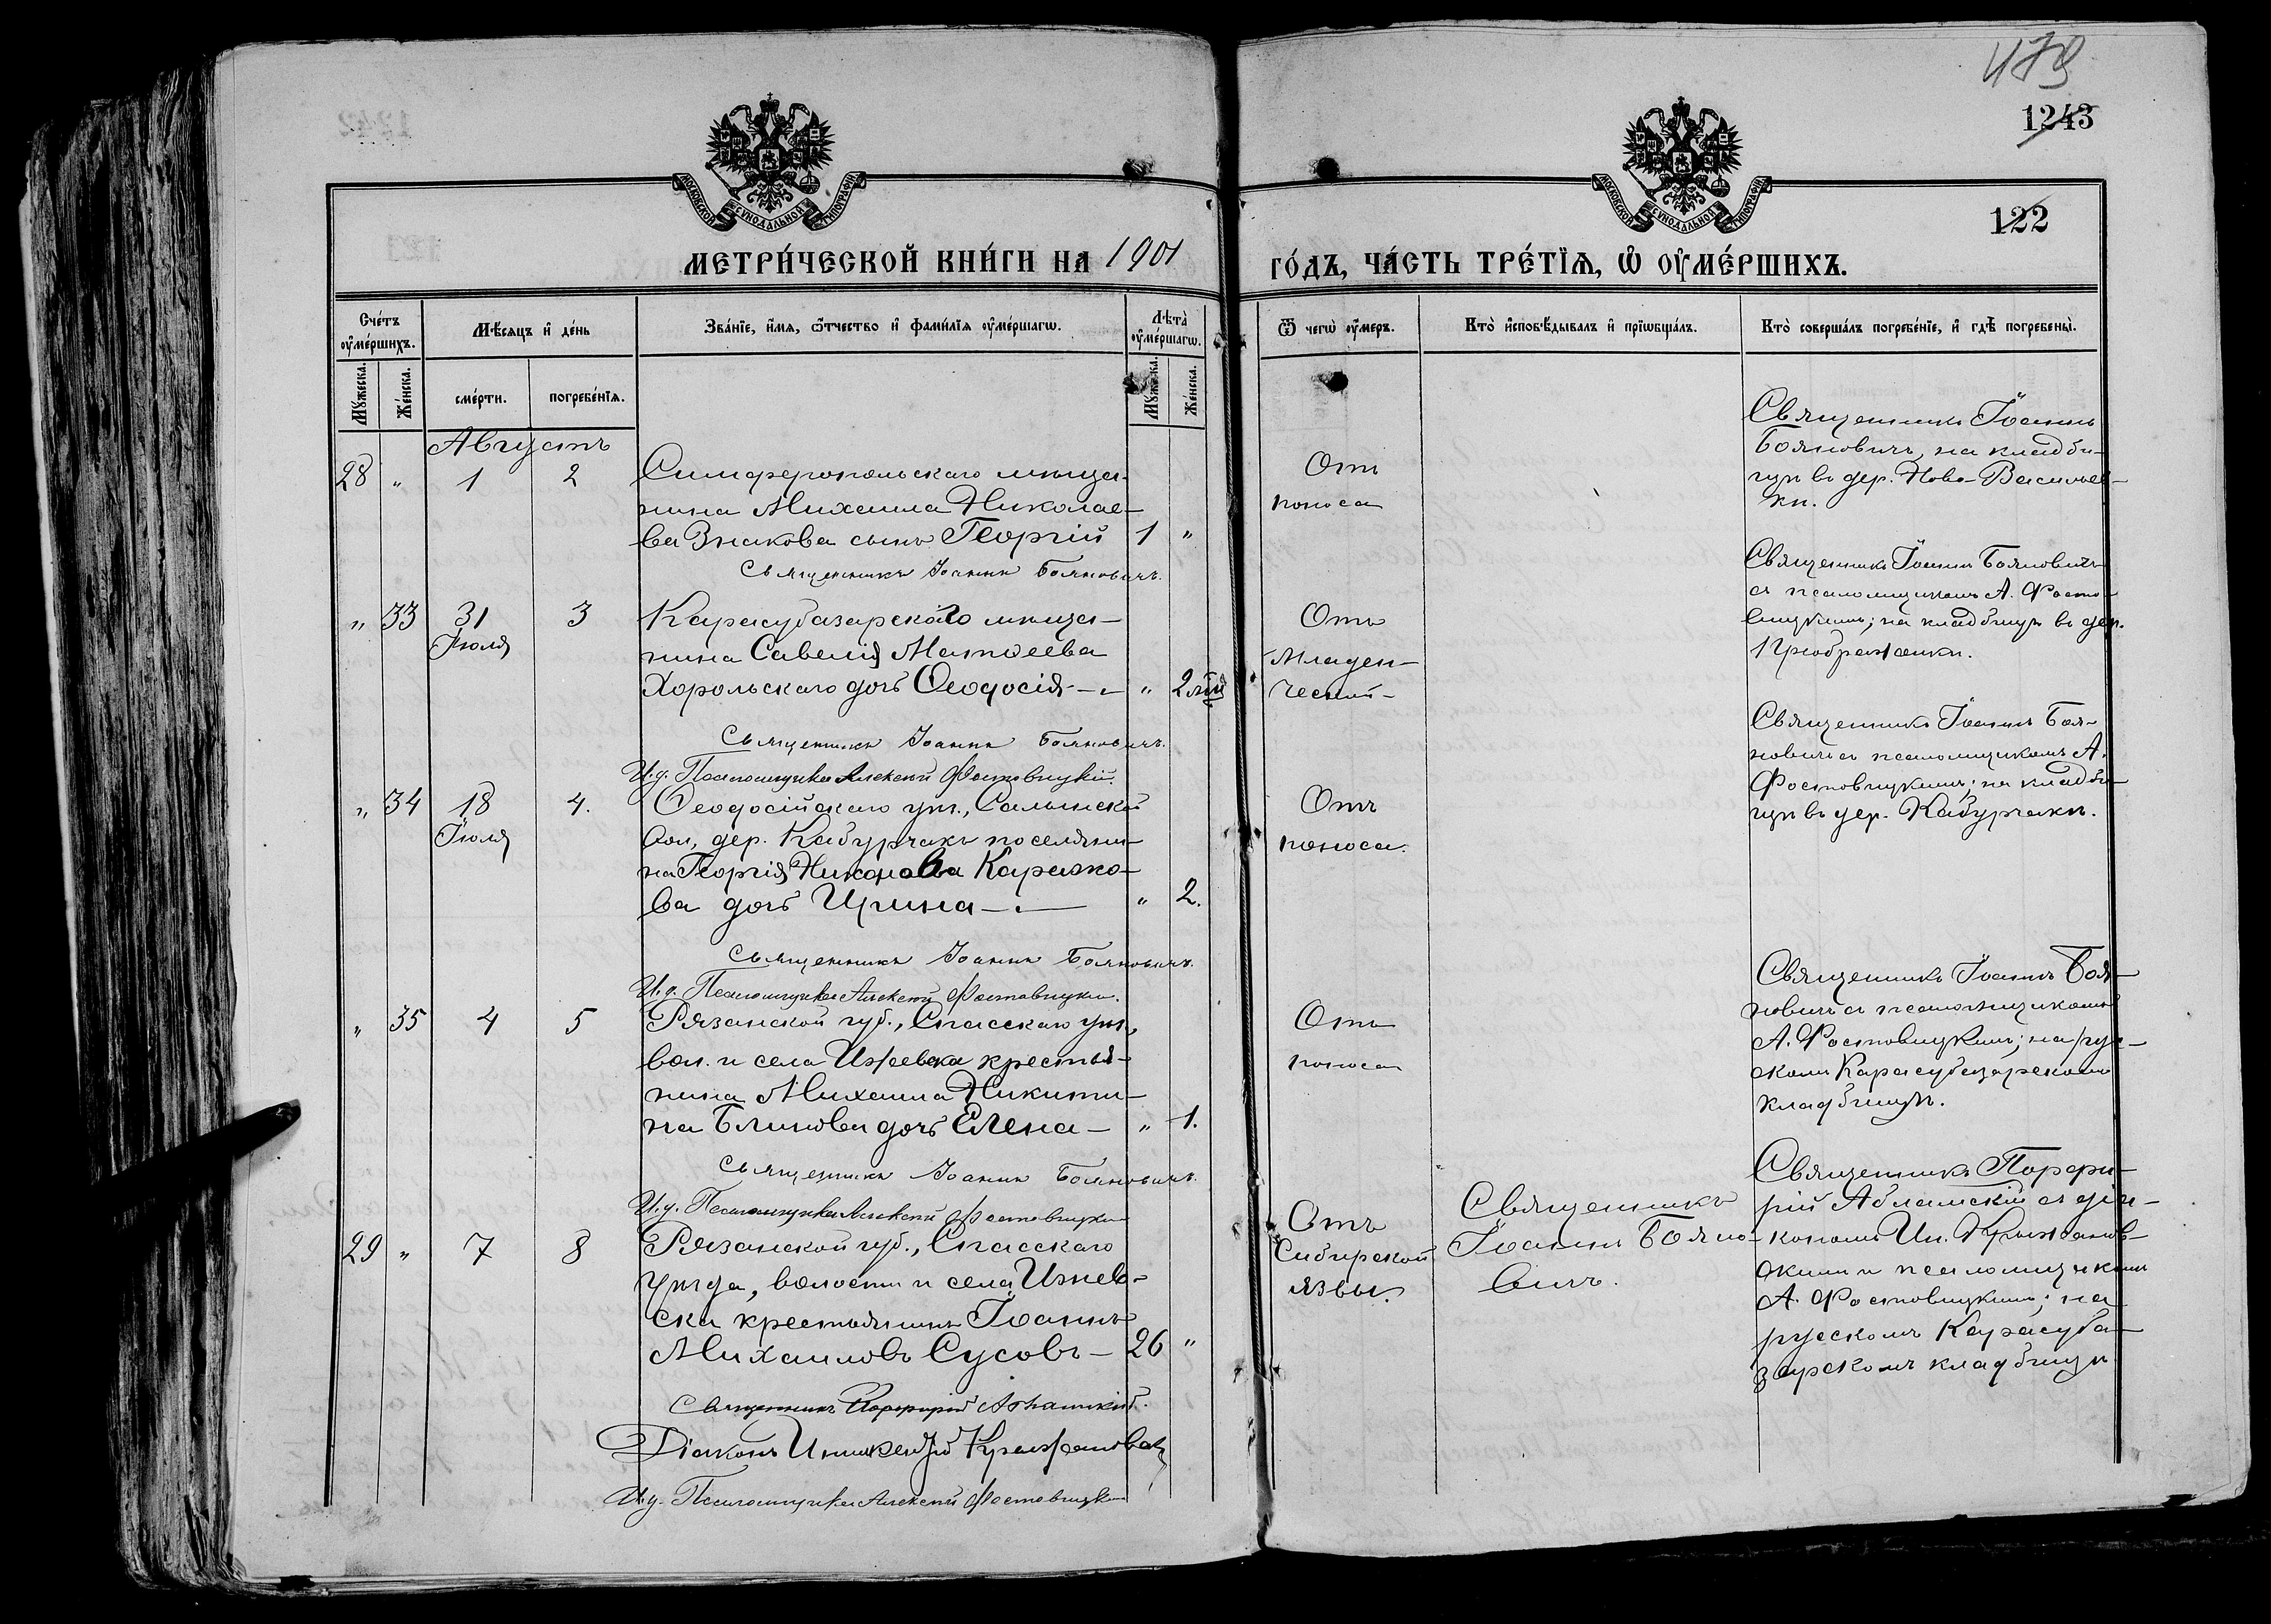 479
1243
122
МОСКОВСКОЙ СѴНОДАЛЬНОЙ ТИПОГРАФІИ
МОСКОВСКОЙ СѴНОДАЛЬНОЙ ТИПОГРАФІИ
МЕТРИ́ЧЕСКОЙ КНИ́ГИ НА 1901
ГО́ДЪ, ЧА́СТЬ ТРЕ́ТЇѦ, Ѽ ОУ҆МЕ́РШИХЪ.
Сче́тъ оу҆ме́ршихъ.
Мꙋ́жеска.
Же́нска.
Мѣ́сяцъ и҆ де́нь
сме́рти.
погребе́нїѧ.
Зва́нїе, и҆́мѧ, ѻ҆́тчество и҆ фами́лїѧ оу҆ме́ршагѡ.
Лѣта̀ оу҆ме́ршагѡ.
Мꙋ́жеска.
Же́нска.
Ѿ чегѡ̀ оу҆́меръ.
Кто̀ и҆сповѣ́дывалъ и҆ прїѡбща́лъ.
Кто̀ соверша́лъ погребе́нїе, и҆ гдѣ̀ погребены̀.
Августъ
28 " 1 2
Симферопольскаго мѣща-
нина Михаила Николае-
ва Знакова сынъ Георгій 1 "
Священникъ Іоаннъ Бояновичъ.
Отъ
поноса
Священникъ Іоаннъ
Бояновичъ, на кладби-
щѣ въ дер. Ново-Васильев-
ки.
" 33 31 3
Іюля
Карасубазарскаго мѣща-
нина Савелія Матѳеева
Хорольскаго дочь Ѳеодосія " 2
Священникъ Іоаннъ Бояновичъ.
И.д. Псаломщика Алексій Фостовицкій.
Отъ
младен-
ческой
Священникъ Іоаннъ Бояновичъ
съ псаломщикомъ А. Фосто-
вицкимъ; на кладбищѣ въ дер.
Преображенки.
" 34 18 4.
Іюля
Ѳеодосійскаго уѣз., Салынской
вол., дер. Кабурчакъ поселяни-
на Георгія Никонова Каражо-
ва дочь Ирина " 2.
Священникъ Іоаннъ Бояновичъ.
И.д. Псаломщика Алексій Фостовицкій.
Отъ
поноса.
Священникъ Іоаннъ Боя-
новичъ съ псаломщикомъ А.
Фостовицкимъ; на кладби-
щѣ въ дер. Кабурчакъ.
" 35 4 5
Рязанской губ., Спасскаго уѣз.,
вол. и села Ижевска крестья-
нина Михаила Никити-
на Блинова дочь Елена " 1.
Священникъ Іоаннъ Бояновичъ.
И.д. Псаломщика Алексій Фостовицкій
Отъ
поноса
Священникъ Іоаннъ Боя-
новичъ съ псаломщикомъ
А. Фостовицкимъ; на рус-
скомъ Карасубазарскомъ
кладбищѣ.
29 " 7 8
Рязанской губ., Спасскаго
уѣзда, волости и села Ижев-
ска крестьянинъ Іоаннъ
Михаиловъ Сусовъ 26 "
Священникъ Порфирій
Діаконъ Иннокентій Крыжановскій
И.д. Псаломщика Алексій Фостовицкій
Отъ
Сибирской
язвы.
Священникъ
Іоаннъ Бояно-
вичъ.
Священникъ Порфи-
рій съ діа-
кономъ Ин. Крыжанов-
скимъ и псаломщикомъ
А. Фостовицкимъ; на
русскомъ Карасуба-
зарскомъ кладбищѣ